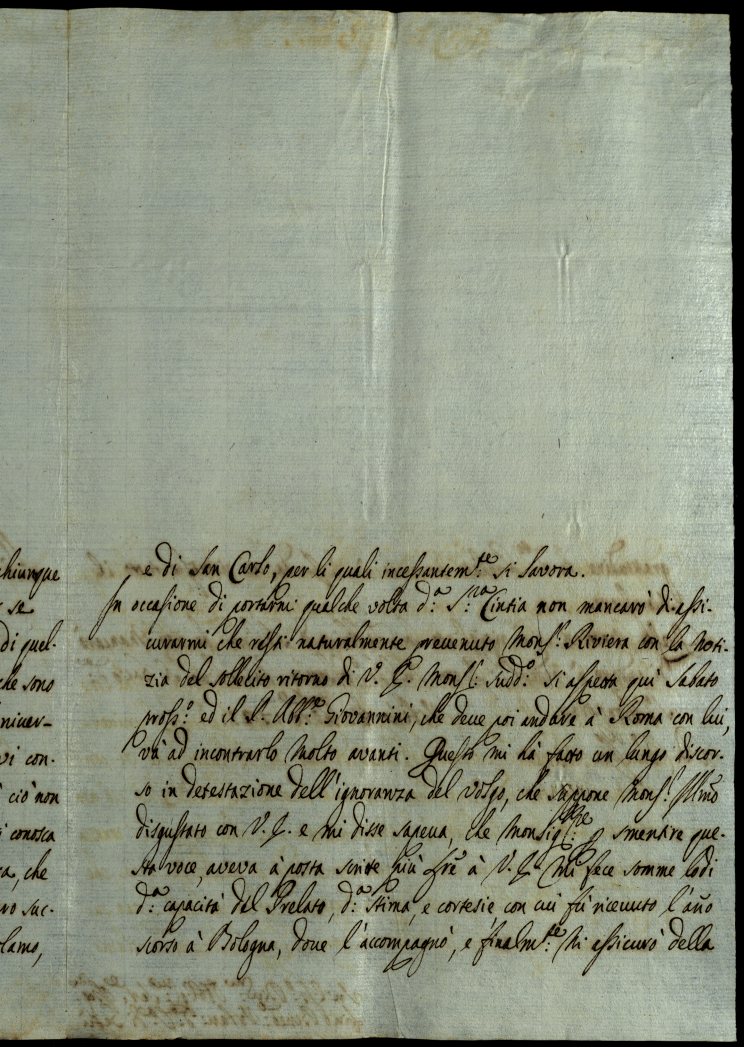 chiunque
r se
di quel-
che sono
niver-
vi con-
ciò non
i conosca
ca, che
ro suc-
clamo,
e di San Carlo, per li quali incessantem:te si lavora.
In occasione di portarmi qualche volta d:a S:na Cintia non mancarò di assi-
curarmi che resti naturalmente prevenuto Mons:r Riviera con la noti-
zia del sollecito ritorno di V. E. Mons:r Sudd:o si aspetta quì Sabato
pross:o ed il S. Abb:e Giovannini, che deve poi andare à Roma con lui,
và ad incontrarlo molto avanti. Questo mi hà fatto un lungo discor-
so in detestazione dell'ignoranza del volgo, che suppone Mons:r Illmo
disgustato con V. E. e mi disse sapeva, che Monsig:re p smentire que-
sta voce, aveva à posta scritte più lre à V. E. Mi fece somme lodi
d:a capacità del Prelato, d:a stima, e cortesie con cui fù ricevuto l'año
scorso à Bologna, dove l'accompagnò, e finalm:te Mi assicurò della